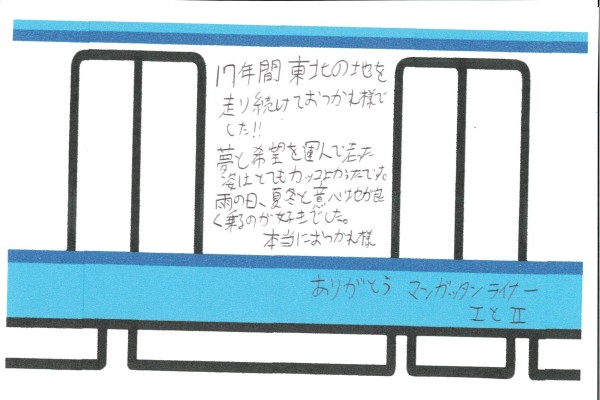 17年間 東北の地を
走り続けておつかれ様で
した!!
夢と希望を運んで走った
姿はとてもカッコよかったです。
雨の日、夏冬と意心地が良
く乗るのが好きでした。
本当におつかれ様
ありがとう マンガッタンライナー
IとII